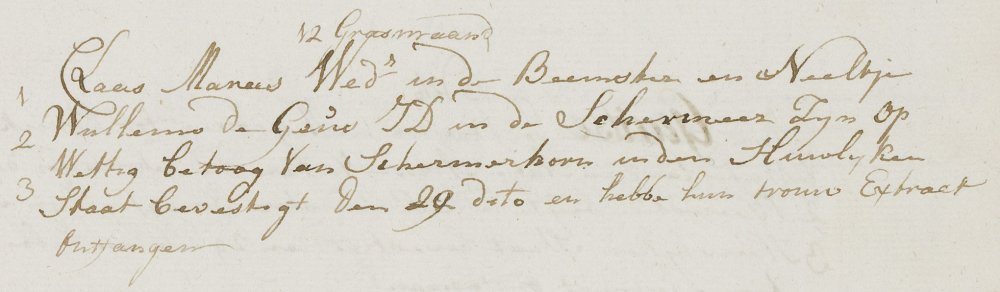 12 Grasmaand
1 Claas Maneus Wedr in de Beemster en Neeltje
2 Willems de Geus JD in de Schermeer Zyn op
Wettig betoog Van Schermerhorn in den Huwlyken
3 Staat bevestigt den 29 dito en hebbe hun trouw Extract
Ontfangen